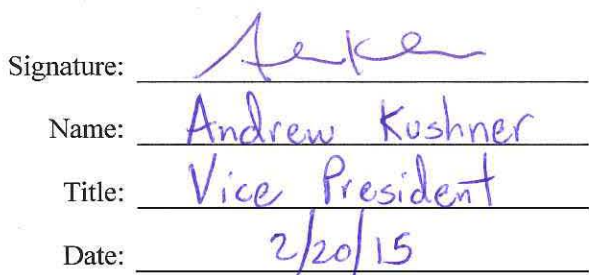 Signature:
Name: Andrew Kushner
Title: Vice President
Date: 2/20/15